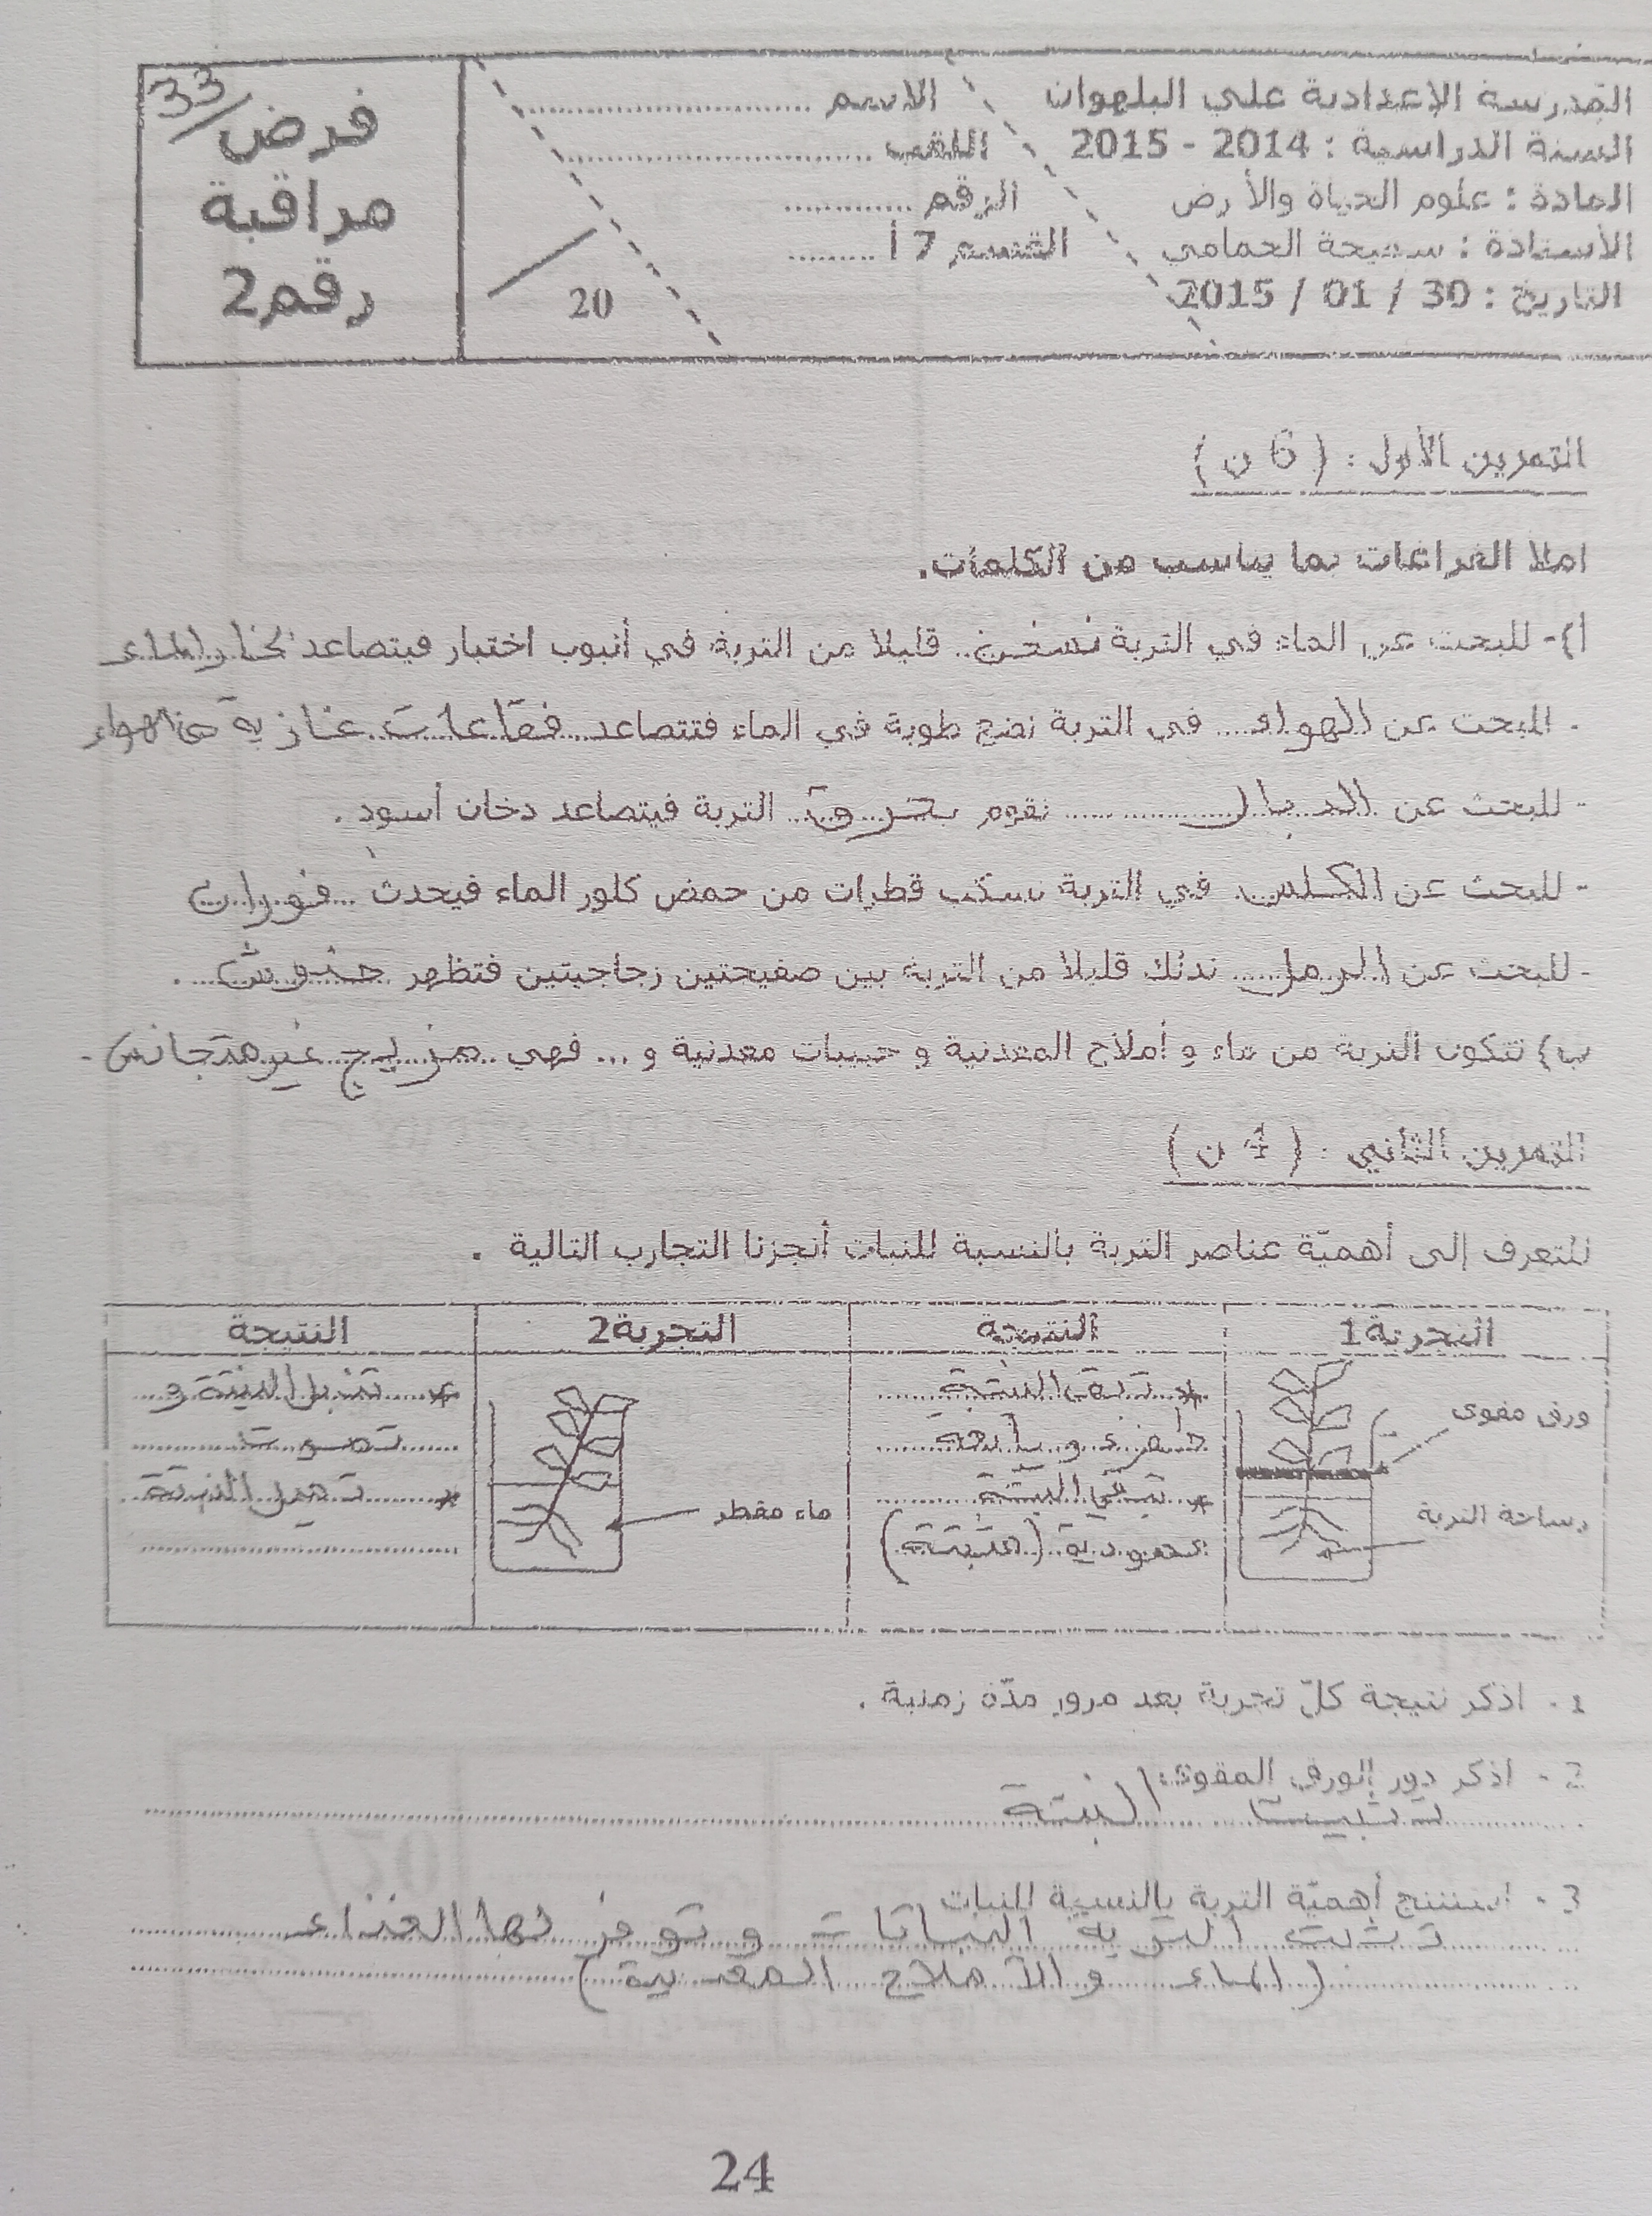 المدرسة الإعدادية علي البلهوان
السنة الدراسية : 2014 - 2015
المادة : علوم الحياة والأرض
الأستاذة : سميحة الحمامي
التاريخ : 30 / 01 / 2015
الاسم ..............................
اللقب ..............................
الرقم .............
القسم 7 أ .........
20
33
فرض
مراقبة
رقم2
التمرين الأول : ( 6 ن )
املا الفراغات بما يناسب من الكلمات.
أ)- للبحث عن الماء في التربة نسخن.. قليلا من التربة في أنبوب اختبار فيتصاعد بخار الماء
- للبحث عن الهواء.... في التربة نضع طوبة في الماء فتتصاعد فقاعات غازية من الهواء
- للبحث عن الدبال........... نقوم بحرق.. التربة فيتصاعد دخان أسود .
- للبحث عن الكلس. في التربة نسكب قطرات من حمض كلور الماء فيحدث ...فوران
- للبحث عن الرمل..... ندلك قليلا من التربة بين صفيحتين زجاجيتين فتظهر خدوش... .
ب) تتكون التربة من ماء و أملاح المعدنية و حبيبات معدنية و ... فهي ..مزيج غير متجانس.
التمرين الثاني : ( 4 ن )
للتعرف إلى أهميّة عناصر التربة بالنسبة للنبات أنجزنا التجارب التالية .
التجربة1
النتيجة
التجربة2
النتيجة
ورق مقوى
التربة
* تبقى النبتة
خضراء و يانعة
* تبقى النبتة
عمودية (مثبتة)
ماء مقطر
* تذبل النبتة و
تموت
* تميل النبتة
1 - اذكر نتيجة كلّ تجربة بعد مرور مدّة زمنية .
2 - اذكر دور الورق المقوى:
تثبيت النبتة
3 - استنتج أهميّة التربة بالنسبة للنبات
تثبت التربة النباتات و توفر لها الغذاء
(الماء و الأملاح المعدنية)
24